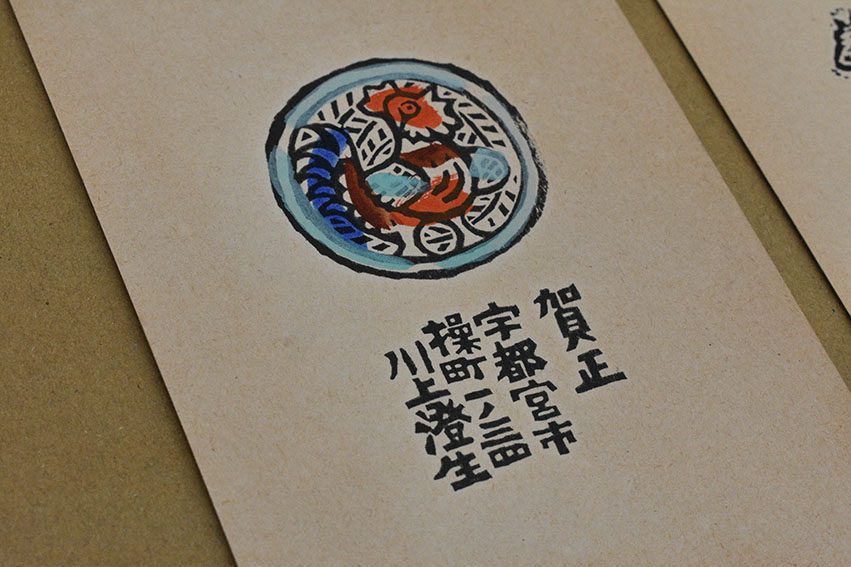 賀正
宇都宮市
操町一ノ三四
川上澄生